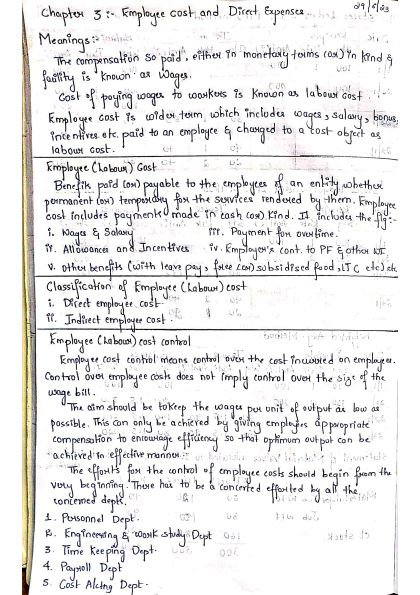 29/5/23
Chapter 3 :- Employee cost and Direct Expenses
Meanings :-
The compensation so paid, either in monetary terms (or) in kind &
facility is known as wages.
Cost of paying wages to workers is known as labour cost.
Employee cost is wider term which includes wages, salary, bonus,
incentives etc. paid to an employee & charged to a cost object as
labour cost.
Employee (Labour) Cost
Benefits paid (or) payable to the employees of an entity whether
permanent (or) temporary for the services rendered by them. Employee
cost includes payments made in cash (or) kind. It includes the flg:-
i. Wages & Salary iii. Payment for overtime.
ii. Allowances and Incentives iv. Employer's cont. to PF & other
v. Other benefits (with leave pay, free (or) subsidised food, LTC etc) etc
Classification of Employee (Labour) cost
i. Direct employee cost
ii. Indirect employee cost
Employee (Labour) cost control
Employee cost control means control over the cost incurred on employee.
Control over employee costs does not imply control over the size of the
wage bill.
The aim should be to keep the wages per unit of output as low as
possible. This can only be achieved by giving employees appropriate
compensation to encourage efficiency so that optimum output can be
achieved in effective manner.
The efforts for the control of employee costs should begin from the
very beginning. There has to be a concerted efforted by all the
concerned depts.
1. Personnel Dept.
2. Engineering & work study Dept
3. Time Keeping Dept.
4. Payroll Dept
5. Cost Alctng Dept.